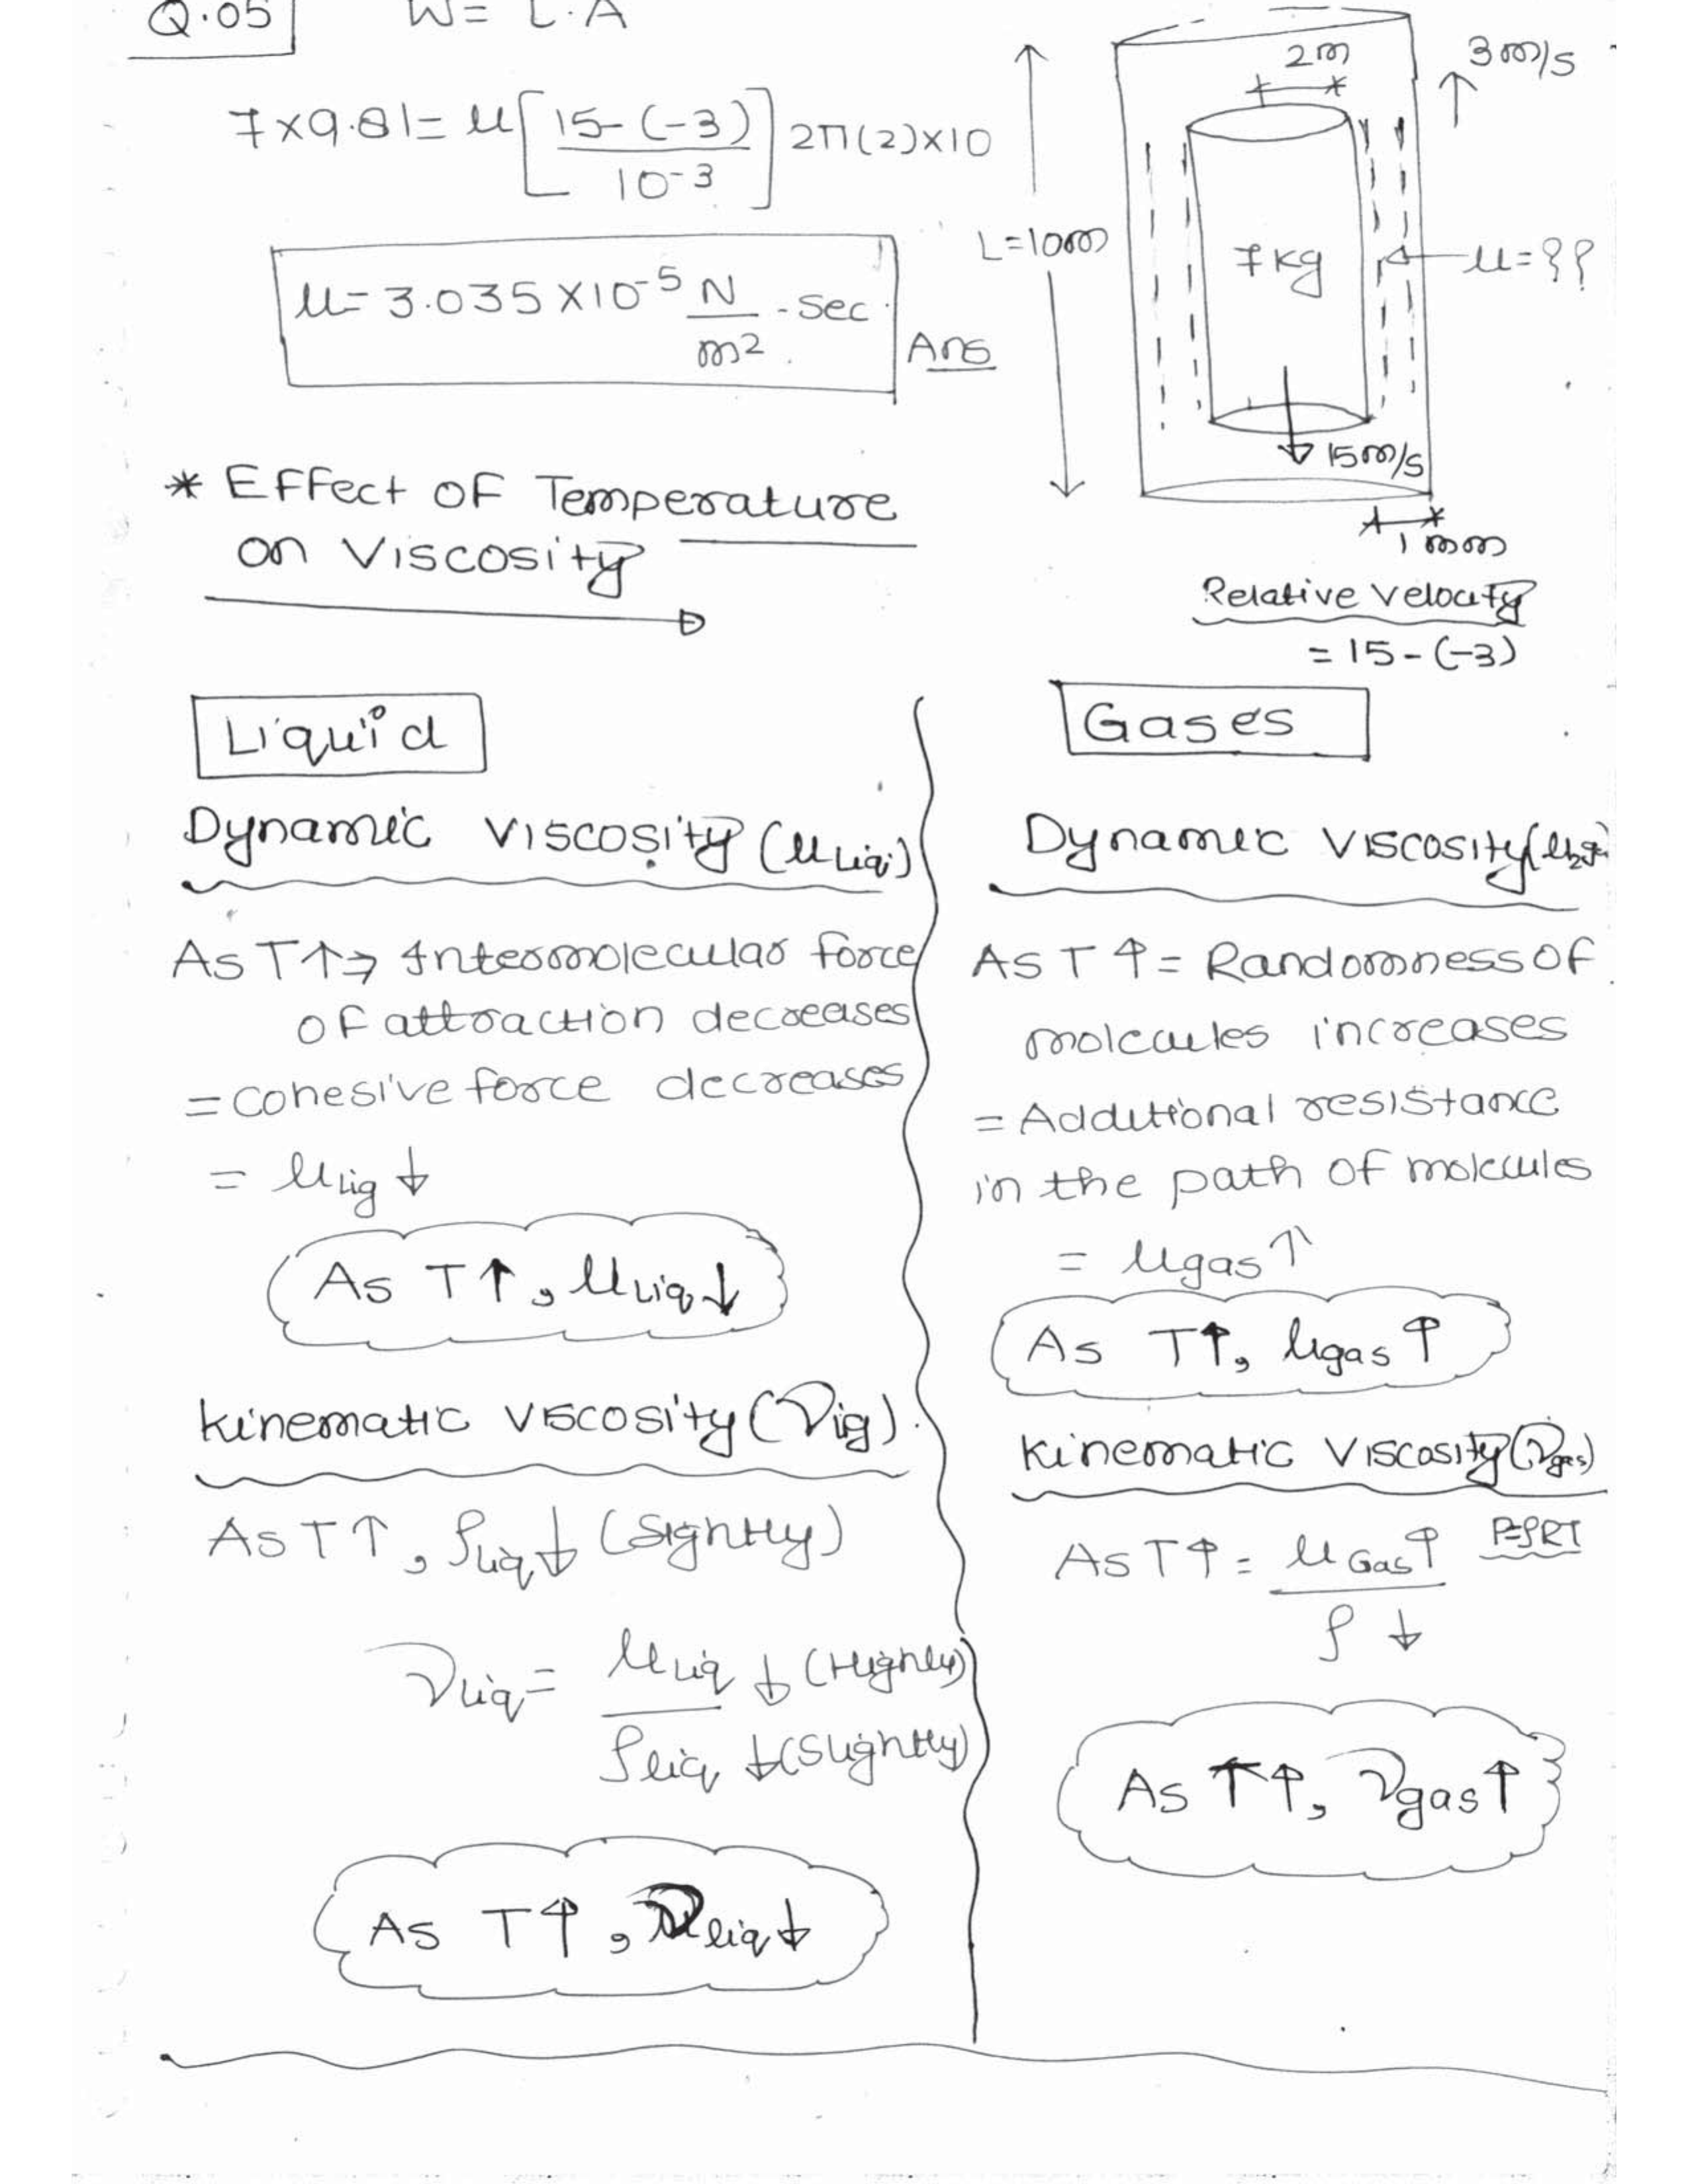 Q.05
W = τ.A
7×9.81 = μ[15-(-3)/10⁻³] 2π(2)×10
μ = 3.035 ×10⁻⁵ N/m² - sec.
Ans
2m
3m/s
L=10m
7kg
μ=??
15m/s
1mm
Relative velocity
= 15-(-3)
* Effect of Temperature
on Viscosity
Liquid
Dynamic Viscosity (μLiq.)
As T↑→ Intermolecular force
of attraction decreases
= Cohesive force decreases
= μliq ↓
As T↑, μLiq ↓
Kinematic Viscosity (νliq).
As T↑, ρLiq ↓ (Sightly)
νLiq = μLiq ↓ (Highly)
ρLiq ↓ (Slightly)
As T↑, νliq ↓
Gases
Dynamic Viscosity
As T↑ = Randomness of
molecules increases
= Additional resistance
in the path of molecules
= μgas ↑
As T↑, μgas ↑
Kinematic Viscosity (νgas)
As T↑ = μGas ↑ / ρ ↓
P=ρRT
As T↑, νgas ↑